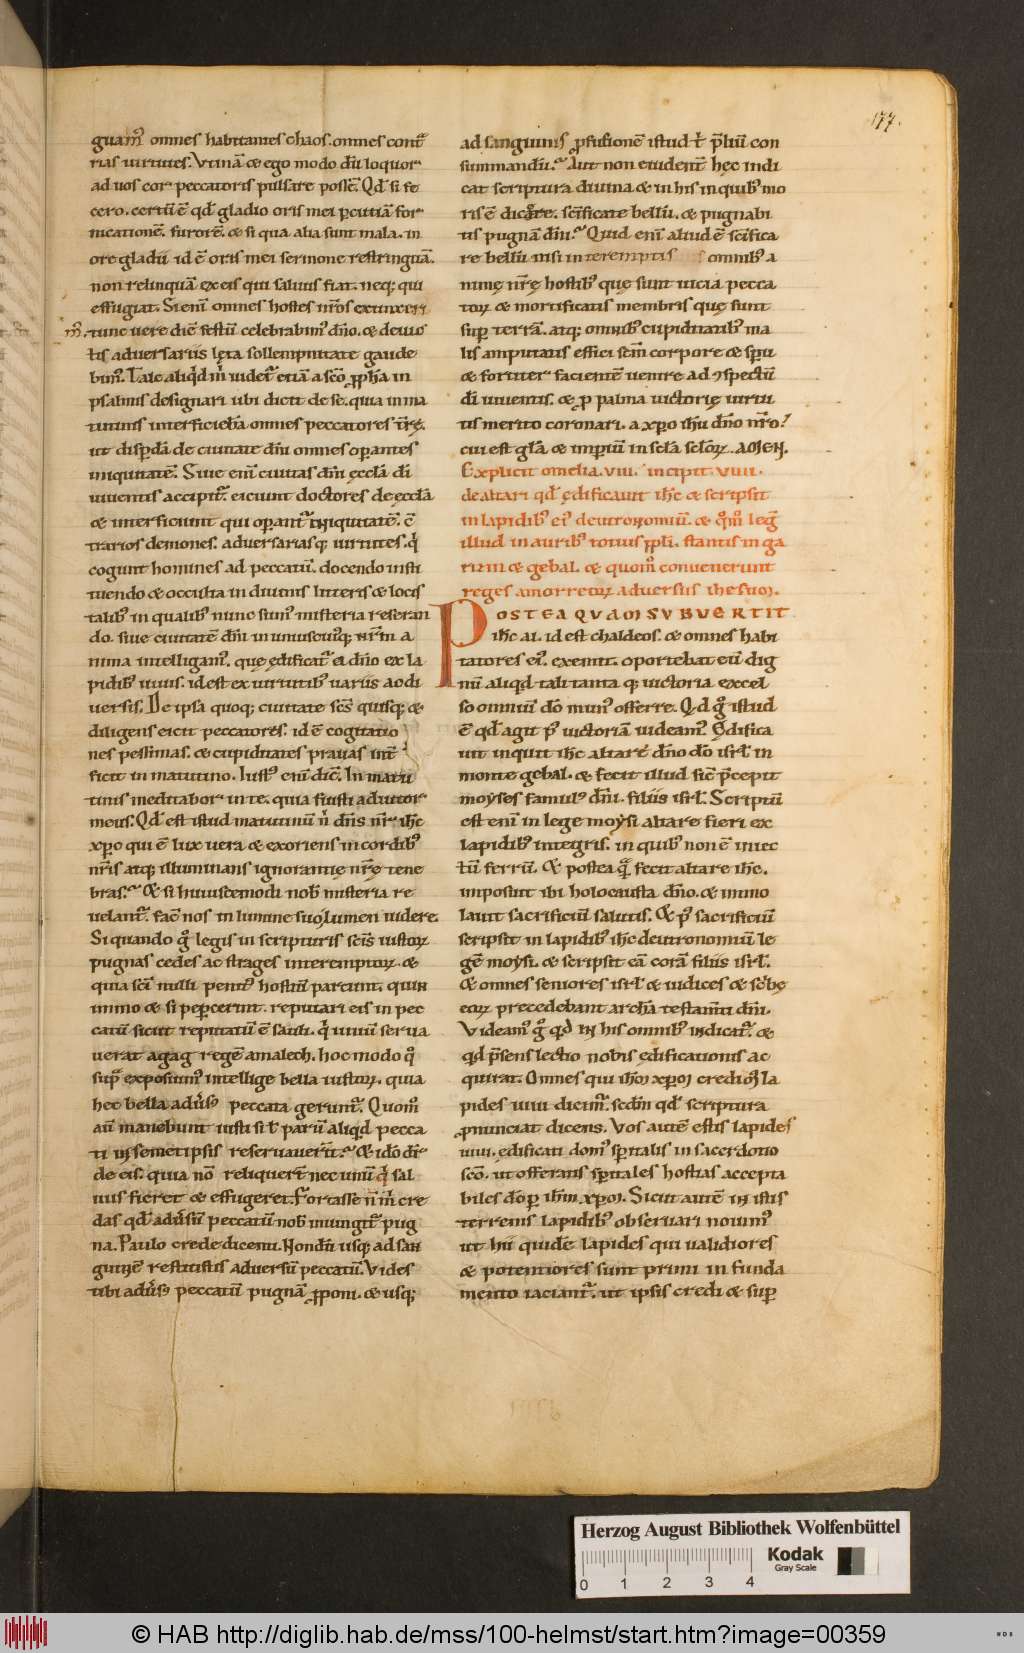 177.
guam᷒ omnes habitantes chaos. omnes cont̄
rias uirtutes. Vtinā & ego modo dū loquor
ad uos cor peccatoris pulsare possē. Qd̄ si fe
cero. certū ē qd̄ gladio oris mei p̄cutiā for
nicationē. furorē. & si qua alia sunt mala. in
ore gladii id ē oris mei sermone restringuā.
non relinquā ex eis qui saluus fiat. neq; qui
effugiat. Si enī omnes hostes nr̄os
tunc uere diē festū celebrabim᷒ dn̄o. & deuic
tis aduersariis lęta sollempnitate gaude
bim᷒. Tale aliqd m̄ uidet᷒ etiā a sc̄o ꝓph̄a in
psalmis designari ubi dicit de se. quia in ma
tutinis interficiebā omnes peccatores tr̄ę.
ut disp̄dā de ciuitate dn̄i omnes oꝑantes
iniquitatē. Siue enī ciuitas dn̄i ęccl̄a dī
uiuentis accipit᷒. eiciunt doctores de ęccl̄a
& interficiunt qui oꝑant᷒ iniquitatē. ɔ̄
trarios demones. aduersariasq; uirtutes. q̇
cogunt homines ad peccatū. docendo insti
tuendo & occulta in diuinis litteris & locis
talib᷒ in qualib᷒ nunc sum᷒ misteria reseran
do. siue ciuitatē dn̄i in uniuscuiusq; nr̄m a
nima intelligam᷒. quę ędificat᷒ a dn̄o ex la
pidib᷒ uiuis. id est ex uirtutib᷒ uariis ac di
uersis. De ipsa quoq; ciuitate sc̄s quisq; &
diligens eicit peccatores. id ē cogitatio
nes pessimas. & cupiditates prauas int̄
ficit in matutino. Iust᷒ enī dic̄. In matu
tinis meditabor in te. quia fuisti adiutor
meus. Qd̄ est istud matutinū n̄ dn̄s nr̄ ih̄c
xp̄c qui ē lux uera & exoriens in cordib᷒
nr̄is atq; illuminans ignorantię nr̄ę tene
bras. & si huiuscemodi nob̄ misteria re
uelant᷒. fac nos in lumine suo lumen uidere.
Si quando g̊ legis in scripturis sc̄is iustoꝝ
pugnas cedes ac strages interemptoꝝ. &
quia sc̄i nulli penit᷒ hostiū parcunt. quin
immo & si peꝑcerunt. reputari eis in pec
catū sicut reputatū ē sauli. q̇ uiuū serua
uerat agag regē amalech. hoc modo q̊
sup̄ exposuim᷒ intellige bella iustoꝝ. quia
hec bella adūs᷒ peccata gerunt᷒. Quom̊
aū manebunt iusti si t̄ parū aliqd pecca
ti in semetipsis reseruauerīt. & idō dr̄
de eis. quia nō reliquerē nec unū q̇ sal
uus fieret & effugeret. Fortasse n̄ m̄ cre
das qd̄ adūsū peccatū nob̄ iniungit᷒ pug
na. Paulo crede dicenti. Nondū usq; ad san
guinē restitistis aduersū peccatū. Vides
tibi adūs᷒ peccatū pugnā ꝓponi. & usq;
ad sanguinis ꝓfusionē istud t̄ p̄liū con
summandū. Aut non euident̄ hęc indi
cat scriptura diuina & in his in quib᷒ mo
ris ē dicere. sc̄ificate bellū. & pugnabi
tis pugnā dn̄i. Quid enī aliud ē sc̄ifica
re bellū nisi interemptis omnib᷒ a
nimę nr̄ę hostib᷒ quę sunt uicia pecca
toꝝ & mortificatis membris quę sunt
suꝑ terrā. atq; omnib᷒ cupiditatib᷒ ma
lis amputatis effici sc̄m corpore & sp̄u
& fortiter facientē uenire ad ɔspectū
dī uiuentis. & ꝓ palma uictorię uirtu
tis merito coronari. a xp̄o ih̄u dn̄o nr̄o.
cui est gl̄a & imꝑiū in sc̄la sc̄loꝝ. AMEN.
Explicit omelia. VIII. incipit. VIIII.
de altari qd̄ ędificauit ih̄c & scripsit
in lapidib᷒ ei᷒ deutronomiū. & q̊m̊ leḡ
illud in aurib᷒ totius ꝓpl̄i. stantis in ga
rizin & gebal. & quom̊ conuenerunt
reges amorreoꝝ aduersus ihesum.
POSTEAQVAM SVBVERTIT
ih̄c ai. id est chaldeos. & omnes habi
tatores ei᷒. exemit. oportebat eū dig
nū aliqd tali tanta q; uictoria excel
so omniū dō mun᷒ offerre. Qd g̊ istud
ē qd̄ agit p᷒ uictoriā uideam᷒. Ędifica
uit inquit ih̄c altare dn̄o dō isrl̄ in
monte gebal. & fecit illud sic p̄cepit
moyses famul᷒ dn̄i. filiis isrl̄. Scriptū
est enī in lege moysi altare fieri ex
lapidib᷒ integris. in quib᷒ non ē iniec
tū ferrū. & postea q̄ fecit altare ih̄c.
imposuit ibi holocausta dn̄o. & immo
lauit sacrificiū salutis. & p᷒ sacrificiū
scripsit in lapidib᷒ ih̄c deutronomiū le
gē moysi. & scripsit eā corā filiis isrl̄.
& omnes seniores isrl̄ & iudices & sc̄bę
eoꝝ precedebant archā testam̄ti dn̄i.
Videam᷒ g̊ qd in his omnib᷒ indicat᷒. &
qd p̄sens lectio nobis ędificationis ac
quirat. Omnes qui ih̄m xp̄m credim᷒ la
pides uiui dicim᷒. scdm qd̄ scriptura
ꝓnunciat dicens. Vos autē estis lapides
uiui. ędificati dom᷒ sp̄italis in sacerdotio
sc̄o. ut offeratis sp̄itales hostias accepta
biles dō ꝑ ih̄m xp̄m. Sicut autē in istis
terrenis lapidib᷒ obseruari nouim᷒
ut hii quidē lapides qui ualidiores
& potentiores sunt primi in funda
mento iaciant᷒. ut ipsis credi & suꝑ
Herzog August Bibliothek Wolfenbüttel
Kodak
Gray Scale
0 1 2 3 4
© HAB http://diglib.hab.de/mss/100-helmst/start.htm?image=00359